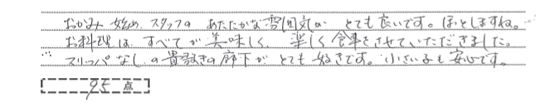 おかみ始め、スタッフの あたたかな雰囲気が とても良いです。ほっとしますね。
お料理は、すべてが美味しく、楽しく食事をさせていただきました。
スリッパなしの畳敷きの廊下が とても好きです。小さい子も安心です。
95 点